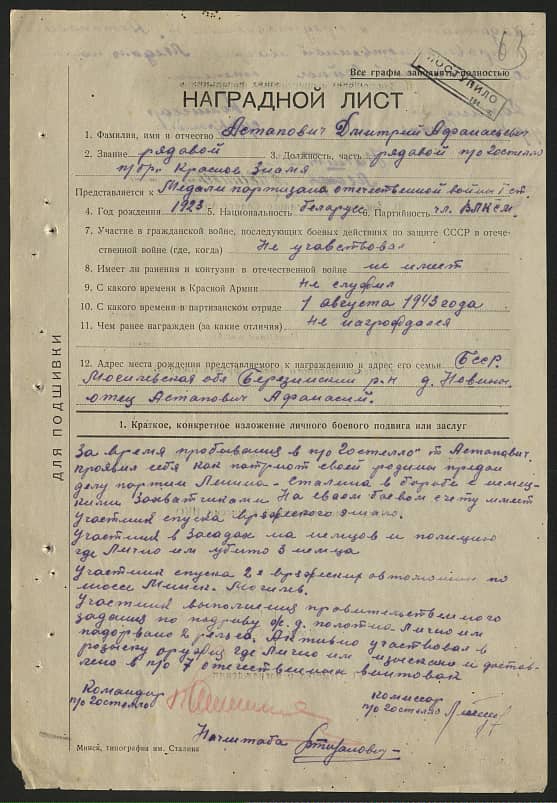 63
Все графы заполнить полностью
ПОСТУПИЛО
НАГРАДНОЙ ЛИСТ
1. Фамилия, имя и отчество Астапович Дмитрий Афанасьевич
2. Звание рядовой 3. Должность, часть рядовой п/о Гостелло
п/бр. Красное Знамя
Представляется к Медали партизана отечественной войны I ст.
4. Год рождения 1923 5. Национальность беларусс Партийность чл. ВЛКСМ
7. Участие в гражданской войне, последующих боевых действиях по защите СССР в отече-
ственной войне (где, когда) Не участвовал
8. Имеет ли ранения и контузии в отечественной войне не имеет
9. С какого времени в Красной Армии Не служил
10. С какого времени в партизанском отряде 1 августа 1943 года
11. Чем ранее награжден (за какие отличия) Не награждался
12. Адрес места рождения представляемого к награждению и адрес его семьи БССР.
Могилевская обл Березинский р-н д. Новины.
отец Астапович Афанасий.
ДЛЯ ПОДШИВКИ
1. Краткое, конкретное изложение личного боевого подвига или заслуг
За время пробывания в п/о Гостелло" т Астапович.
проявил себя как патриот своей родины предан
делу партии Ленина-Сталина в борьбе с немец-
кими захватчиками На своем боевом счету имеет
Участник спуска вражеского эшало.
Участник в засадах на немцов и полицию
где Лично им убито 3 немца
Участник спуска 2х вражеских автомашин по
шоссе Минск-Могилев.
Участник выполнения правительственного
задания по подрыву ж.д. полотна-Лично им
подорвано 2 рельса. Активно участвовал в
розыску оружия где Лично им изыскано и достав-
лено в п/о 7 отечественных винтовок
Командир
п/о Гостелло
комиссар
п/о Гостелло
Начштаба
Минск, типография им. Сталина